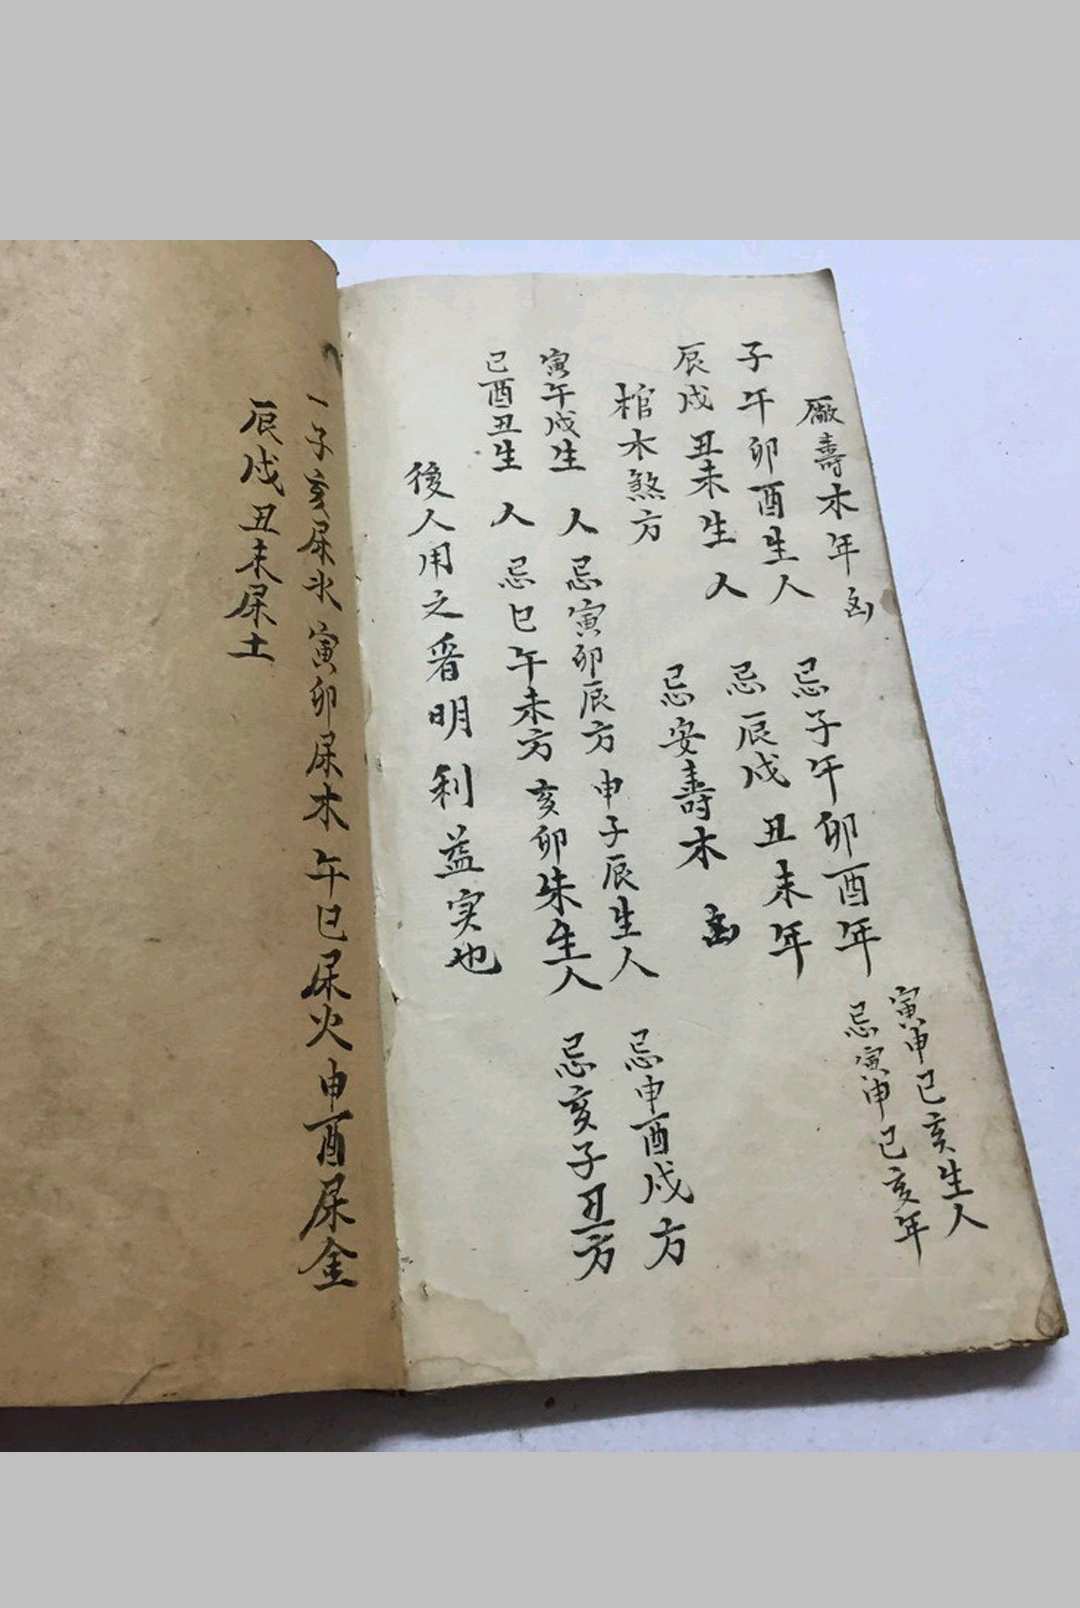 廠壽木年凶
子午卯酉生人 忌子午卯酉年 寅申巳亥生人
辰戌丑未生人 忌辰戌丑未年 忌寅申巳亥年
棺木煞方 忌安壽木凶
寅午戌生人 忌寅卯辰方 申子辰生人 忌申酉戌方
巳酉丑生人 忌巳午未方 亥卯未生人 忌亥子丑方
後人用之看明利益实也
一子亥屎水 寅卯屎木 午巳屎火 申酉屎金
辰戌丑未屎土